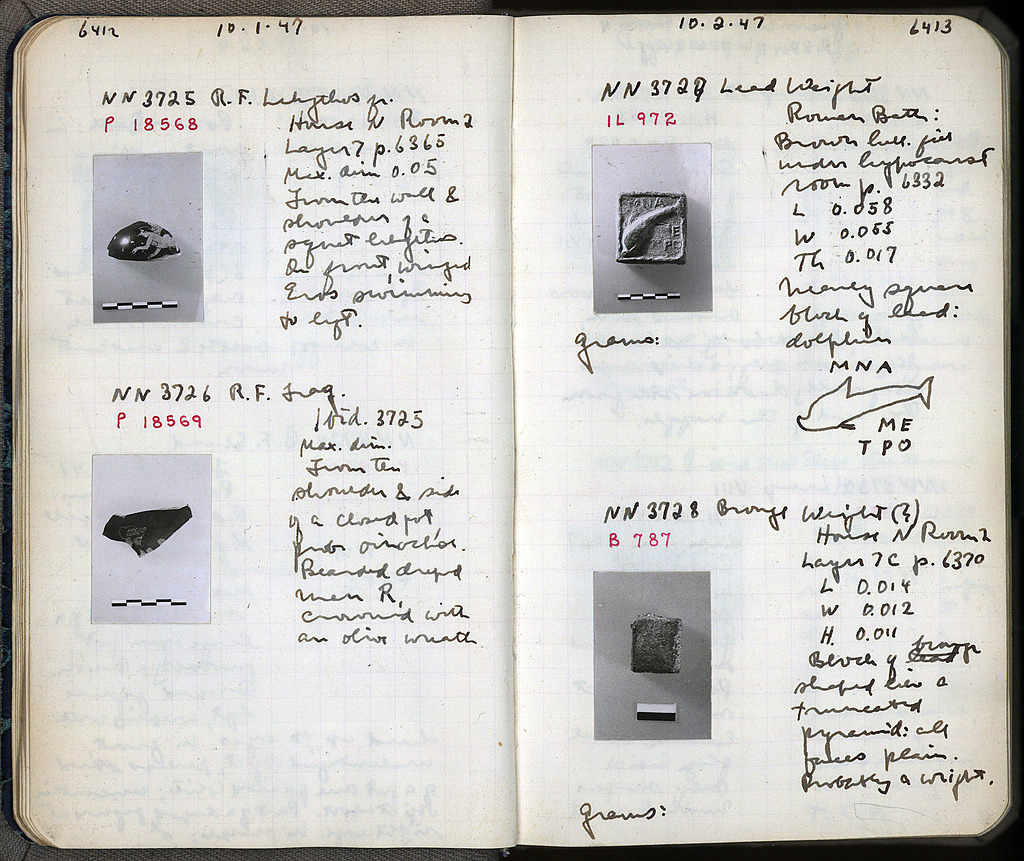 6412
10.1.47
NN 3725 R.F. Lekythos fr.
P 18568
House N Room 2
Layer 7 p. 6365
Max. dim 0.05
From the wall &
shoulder of a
squat lekythos.
On front, winged
Eros swimming
to left.
NN 3726 R.F. Frag.
P 18569
Ibid. 3725
Max. dim.
From the
shoulder & side
of a closed pot
prob. oinochoe.
Bearded draped
man R,
crowned with
an olive wreath
10.2.47
6413
NN 3727 Lead Weight
IL 972
Roman Bath:
Brown hell. fill
under hypocaust
room p. 6332
L 0.058
W 0.055
Th 0.017
Heavy square
block of lead:
dolphin
grams:
MNA
ME
TPO
MNA
NN 3728 Bronze Weight (?)
B 787
House N Room 2
Layer 7C p. 6370
L 0.014
W 0.012
H 0.011
Block of lead bronze
shaped like a
truncated
pyramid: all
faces plain.
Probably a weight.
grams: